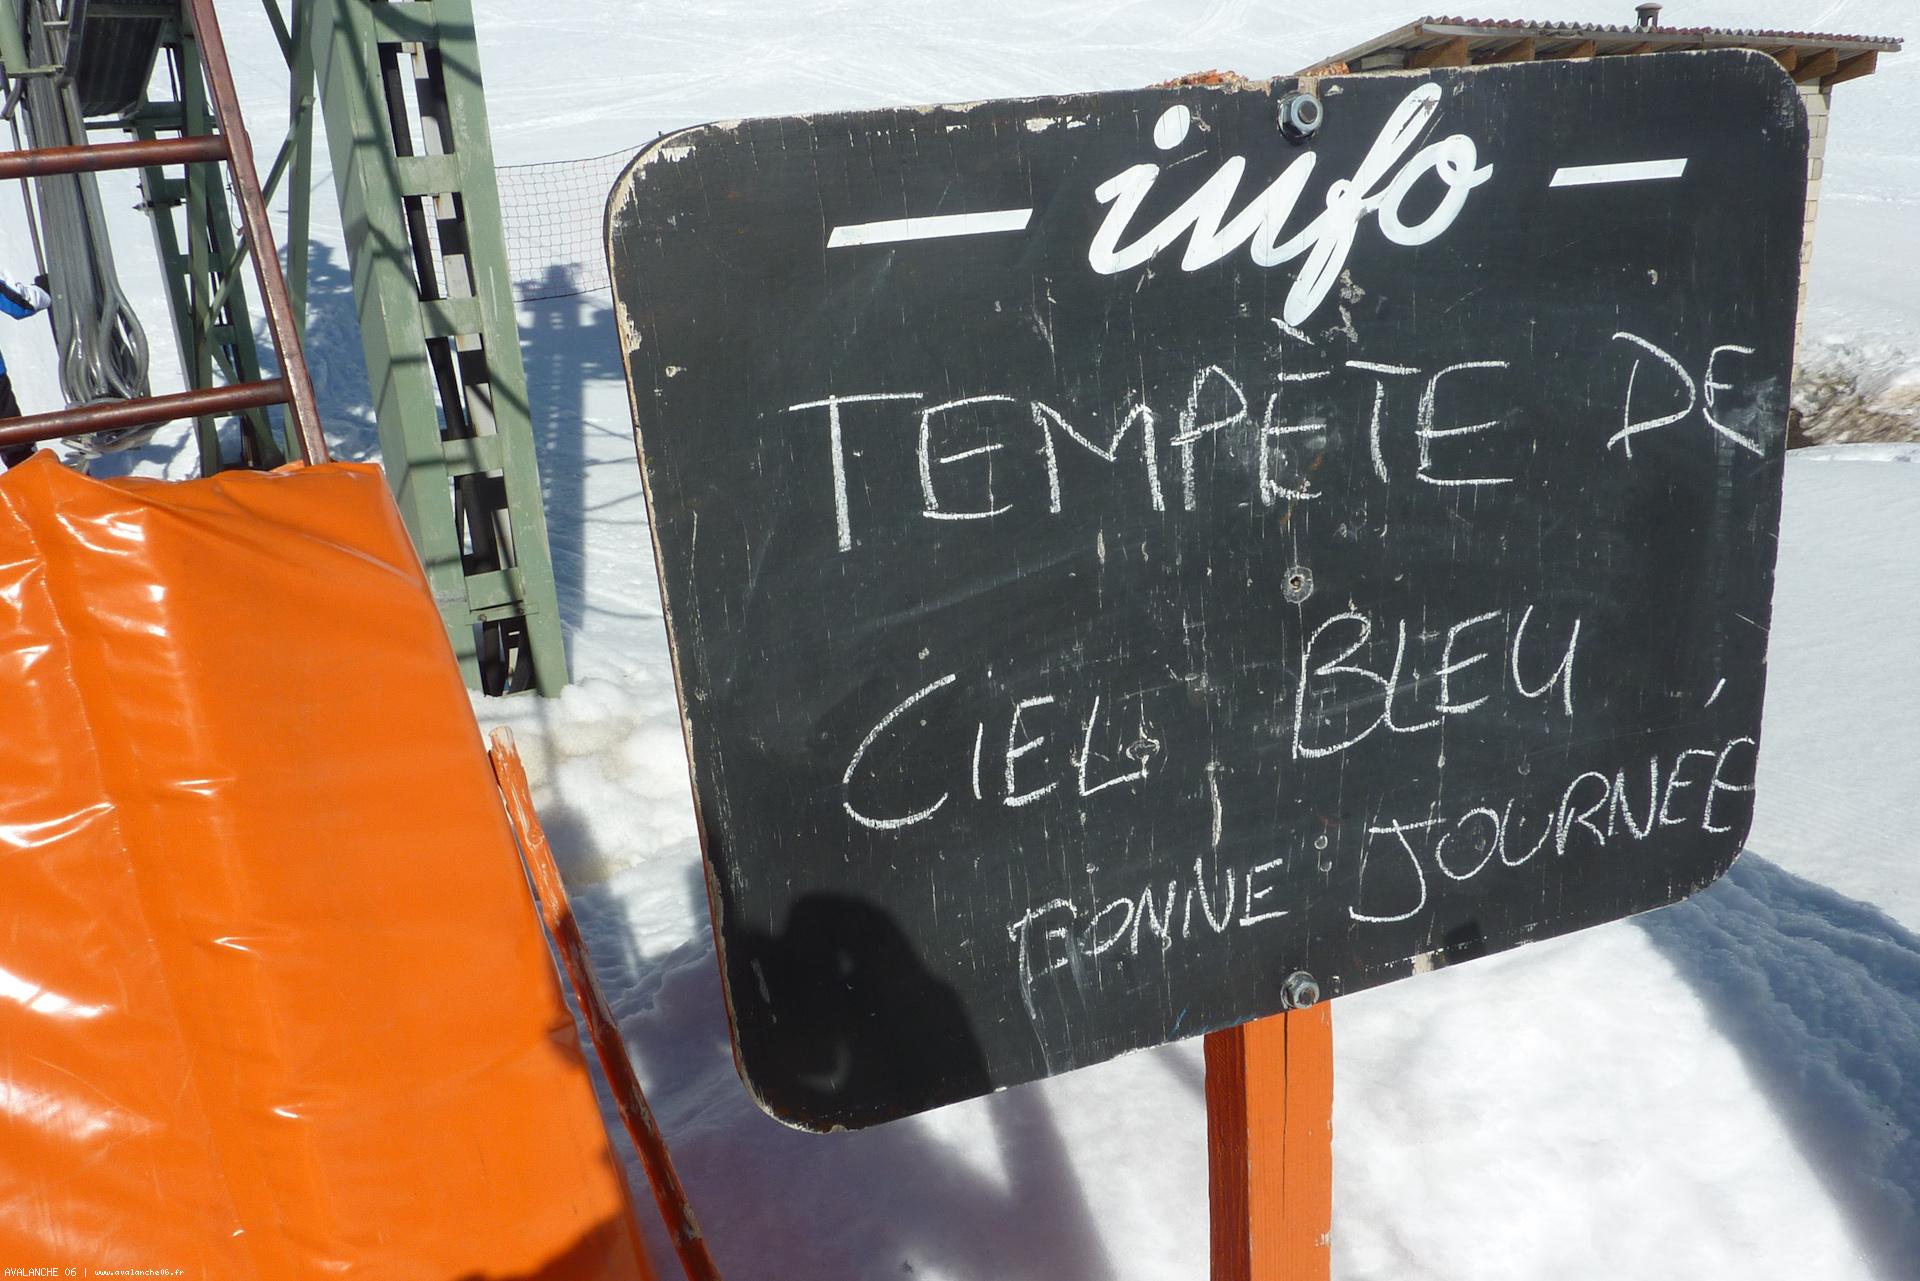 — info —
TEMPÈTE DE
CIEL BLEU
BONNE JOURNÉE
AVALANCHE 06 | www.avalanche06.fr